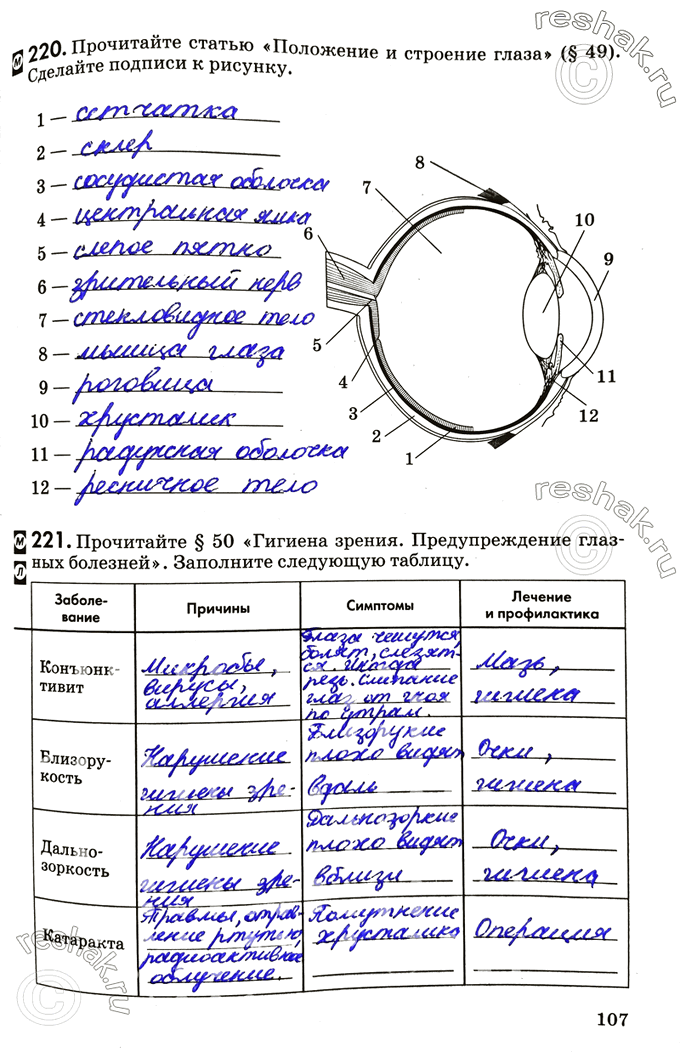 220. Прочитайте статью «Положение и строение глаза» (§ 49).
Сделайте подписи к рисунку.
1 — сетчатка
2 — склер
3 — сосудистая оболочка
4 — центральная ямка
5 — слепое пятно
6 — зрительный нерв
7 — стекловидное тело
8 — мышца глаза
9 — роговица
10 — хрусталик
11 — радужная оболочка
12 — ресничное тело
8
7
10
6
9
5
4
11
3
12
2
1
221. Прочитайте § 50 «Гигиена зрения. Предупреждение глаз-
ных болезней». Заполните следующую таблицу.
Заболе-
вание
Причины
Симптомы
Лечение
и профилактика
Конъюнк-
тивит
Микробы,
вирусы,
аллергия
Глаза чешутся,
болят, слезят-
ся иногда
резь. Слипание
глаз от гноя
по утрам.
Мазь,
гигиена
Близору-
кость
Нарушение
гигиены зре-
ния
Близорукие
плохо видят
вдаль
Очки,
гигиена
Дально-
зоркость
Нарушение
гигиены зре-
ния
Дальнозоркие
плохо видят
вблизи
Очки,
гигиена
Катаракта
Травмы, отрав-
ление ртутью,
радиоактивное
облучение.
Помутнение
хрусталика
Операция
107
reshak.ru
©
reshak.ru
©
reshak.ru
©
reshak.ru
©